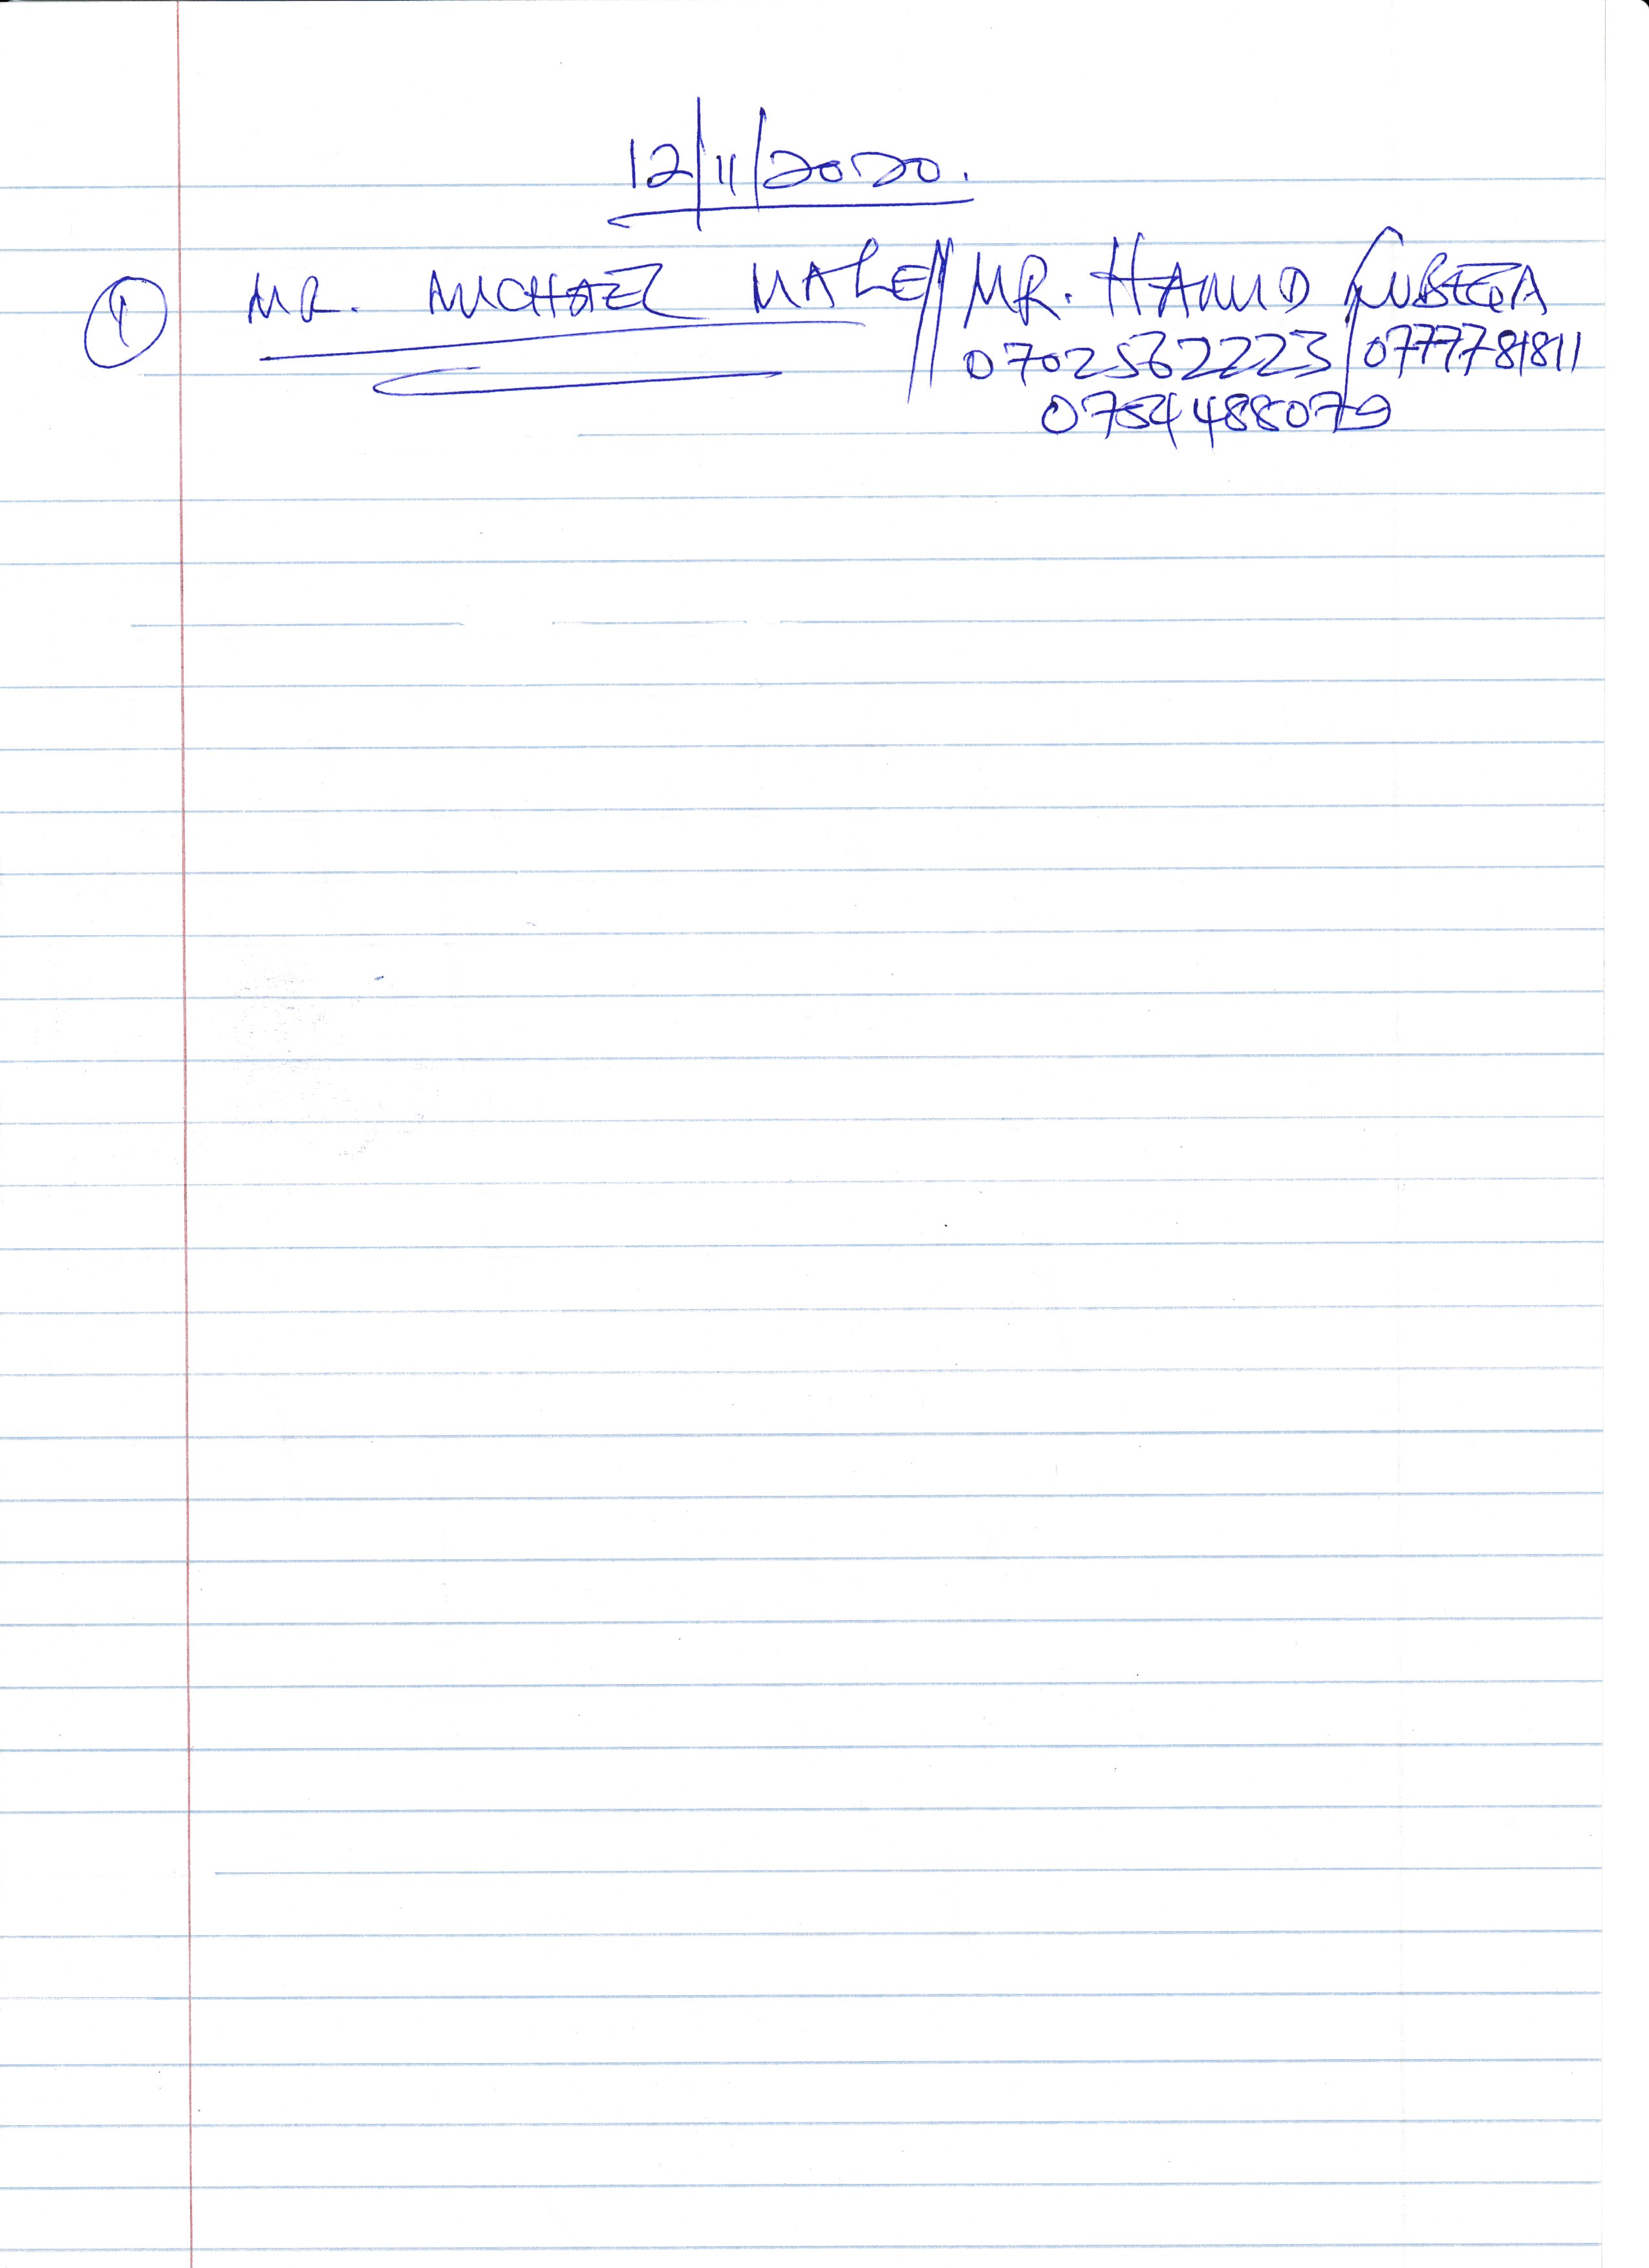 12/11/2020.
① MR. MICHAEL MALE // MR. HAMID LUBEGA
0702562223 / 0777781811
0754488079